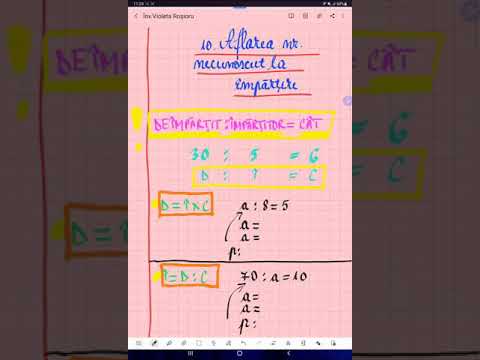 11:24
Înv.Violeta Roșioru
10. Aflarea nr.
necunoscut la
împărțire
! DEÎMPĂRȚIT:ÎMPĂRȚITOR= CÂT
30 : 5 = 6
D : Î = C
D=ÎxC a : 8=5
a=
a=
p:
Î=D:C 70:a=10
a=
a=
p: